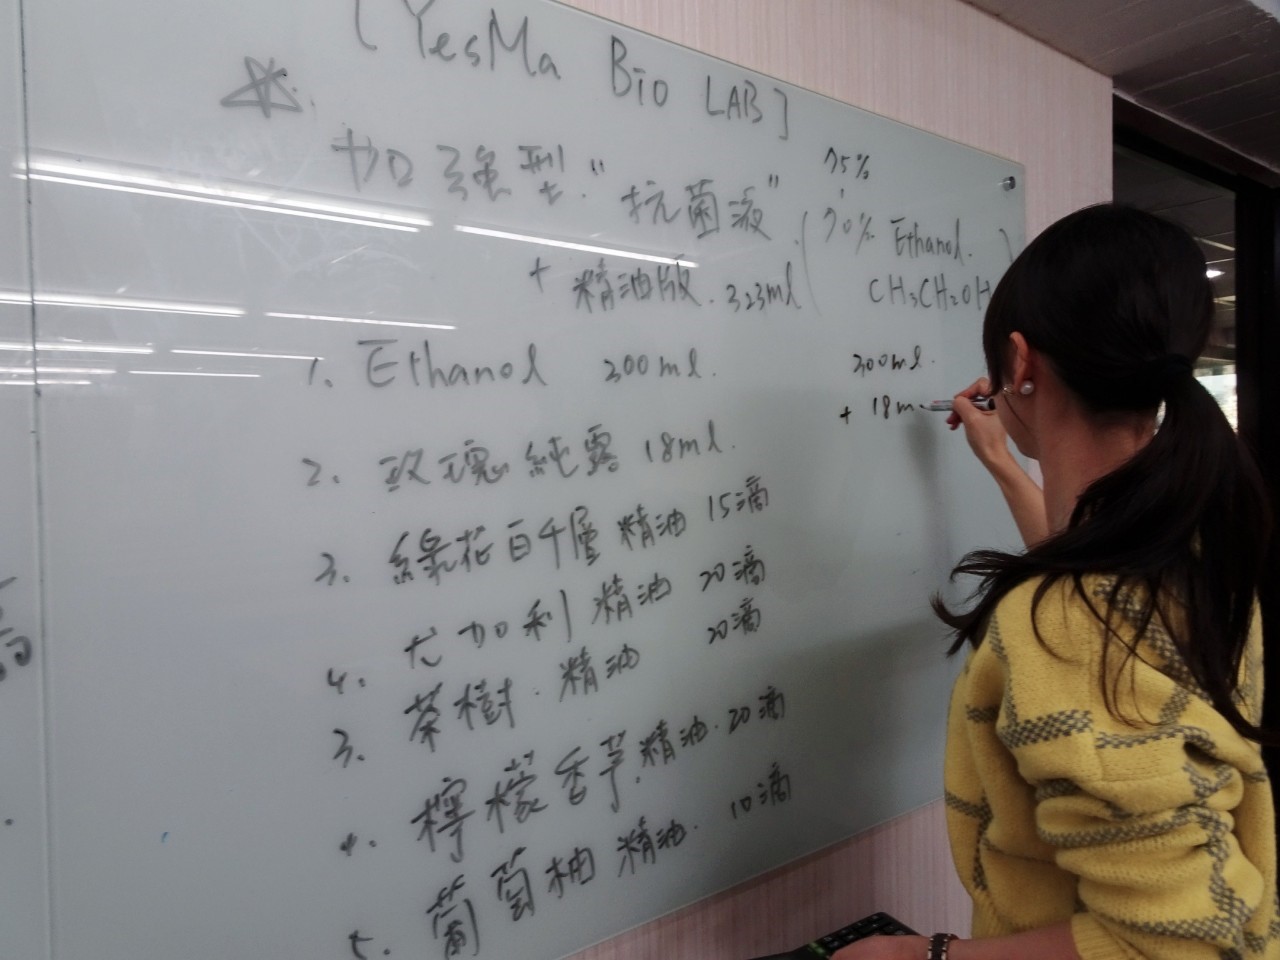 [YesMa Bio LAB]
加強型"抗菌液"
+ 精油版. 323ml
75%
70% Ethanol.
CH3CH2OH
1. Ethanol 300ml.
2. 玫瑰純露 18ml.
3. 綠花白千層精油 15滴
4. 尤加利精油 20滴
3. 茶樹.精油 20滴
4. 檸檬香芋.精油.20滴
5. 葡萄柚精油. 10滴
300ml.
+ 18m